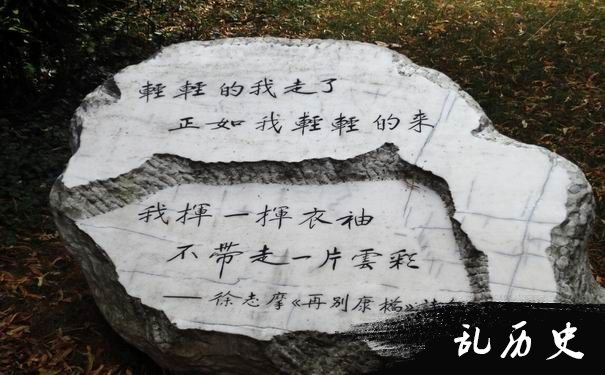 輕輕的我走了
正如我輕輕的来
我揮一揮衣袖
不帶走一片雲彩
——徐志摩《再别康橋》
乱历史